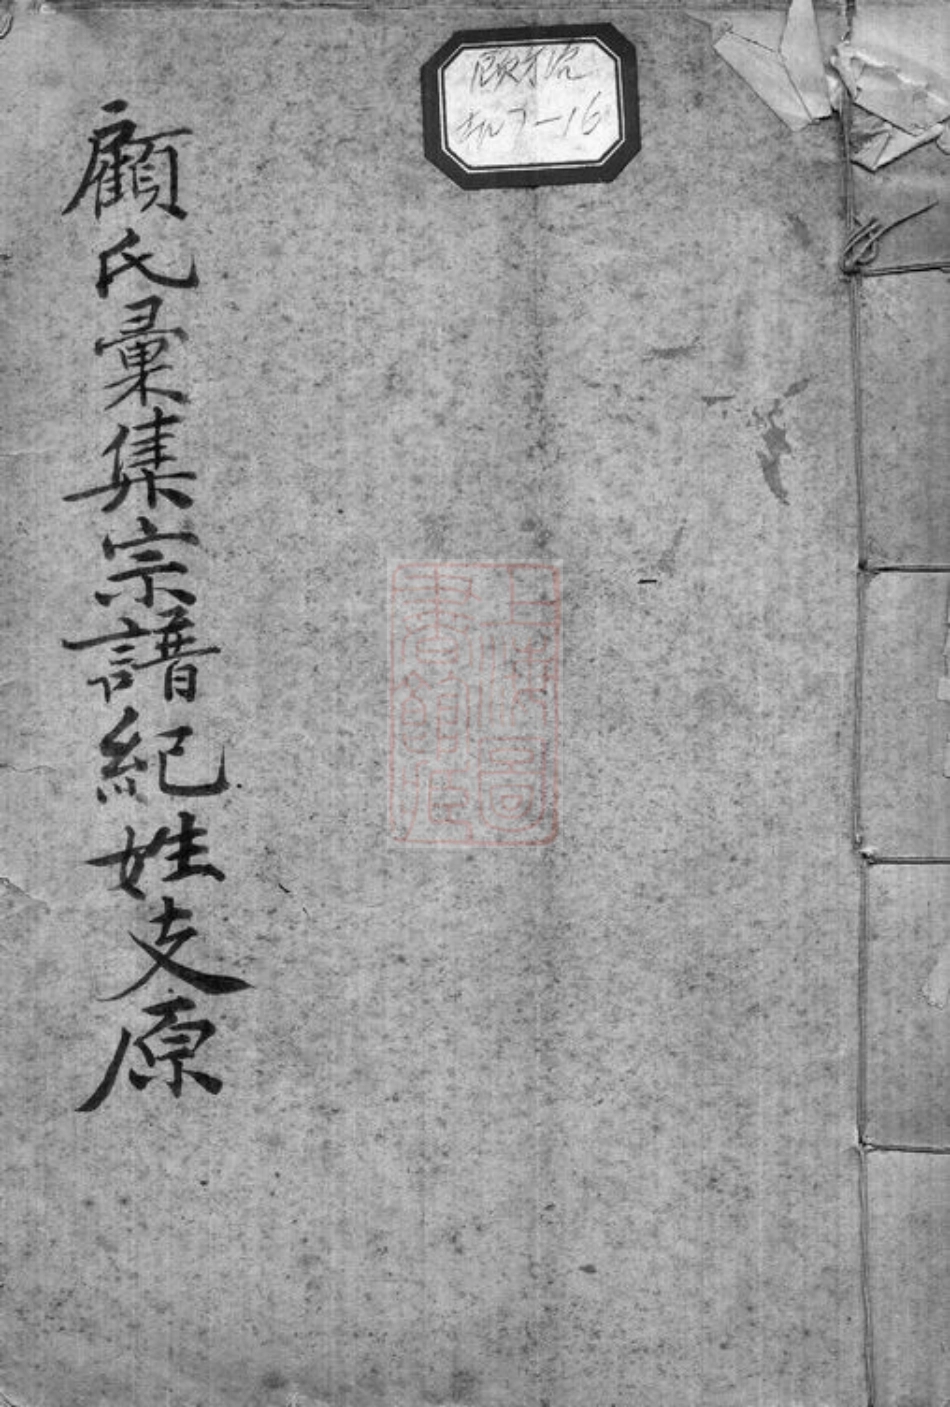 顧氏彙集宗譜紀姓支原
7-16
上海圖書館藏